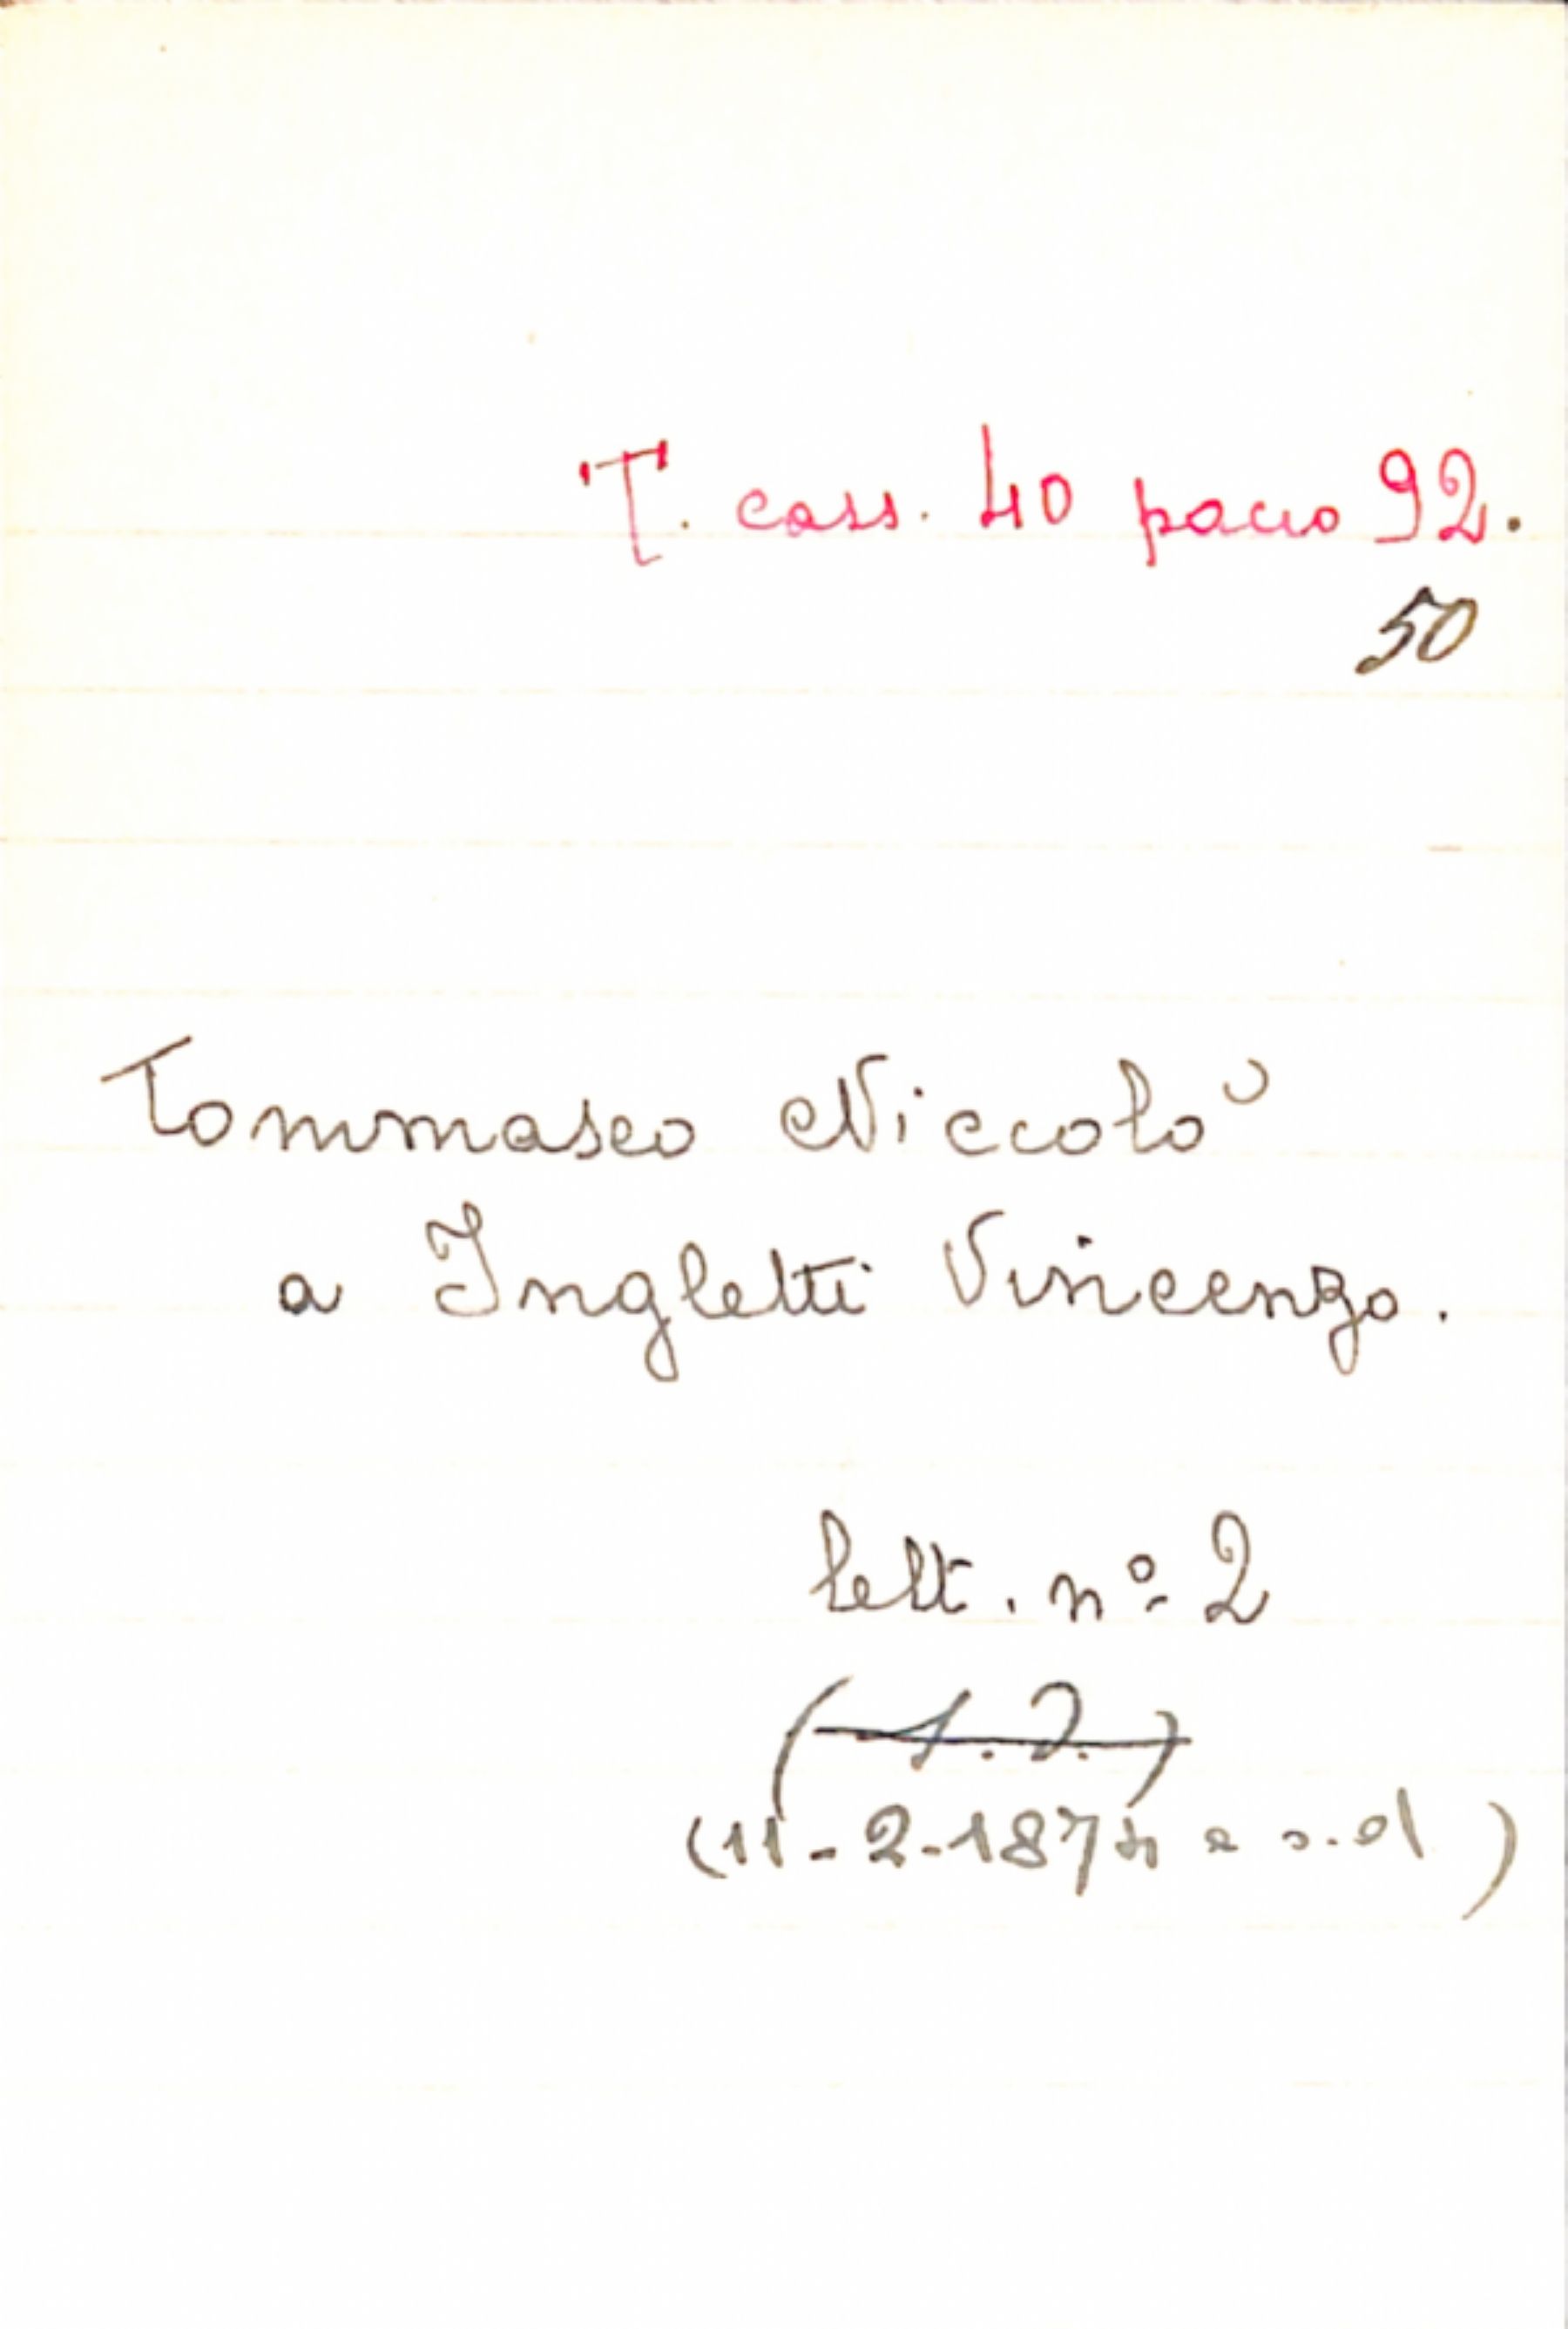 T. cass. 40 pacco 92.
50
Tommaseo Niccolò
a Ingletti Vincenzo.
lett. nº 2
(s.d.)
(11-2-1874 e s.d)